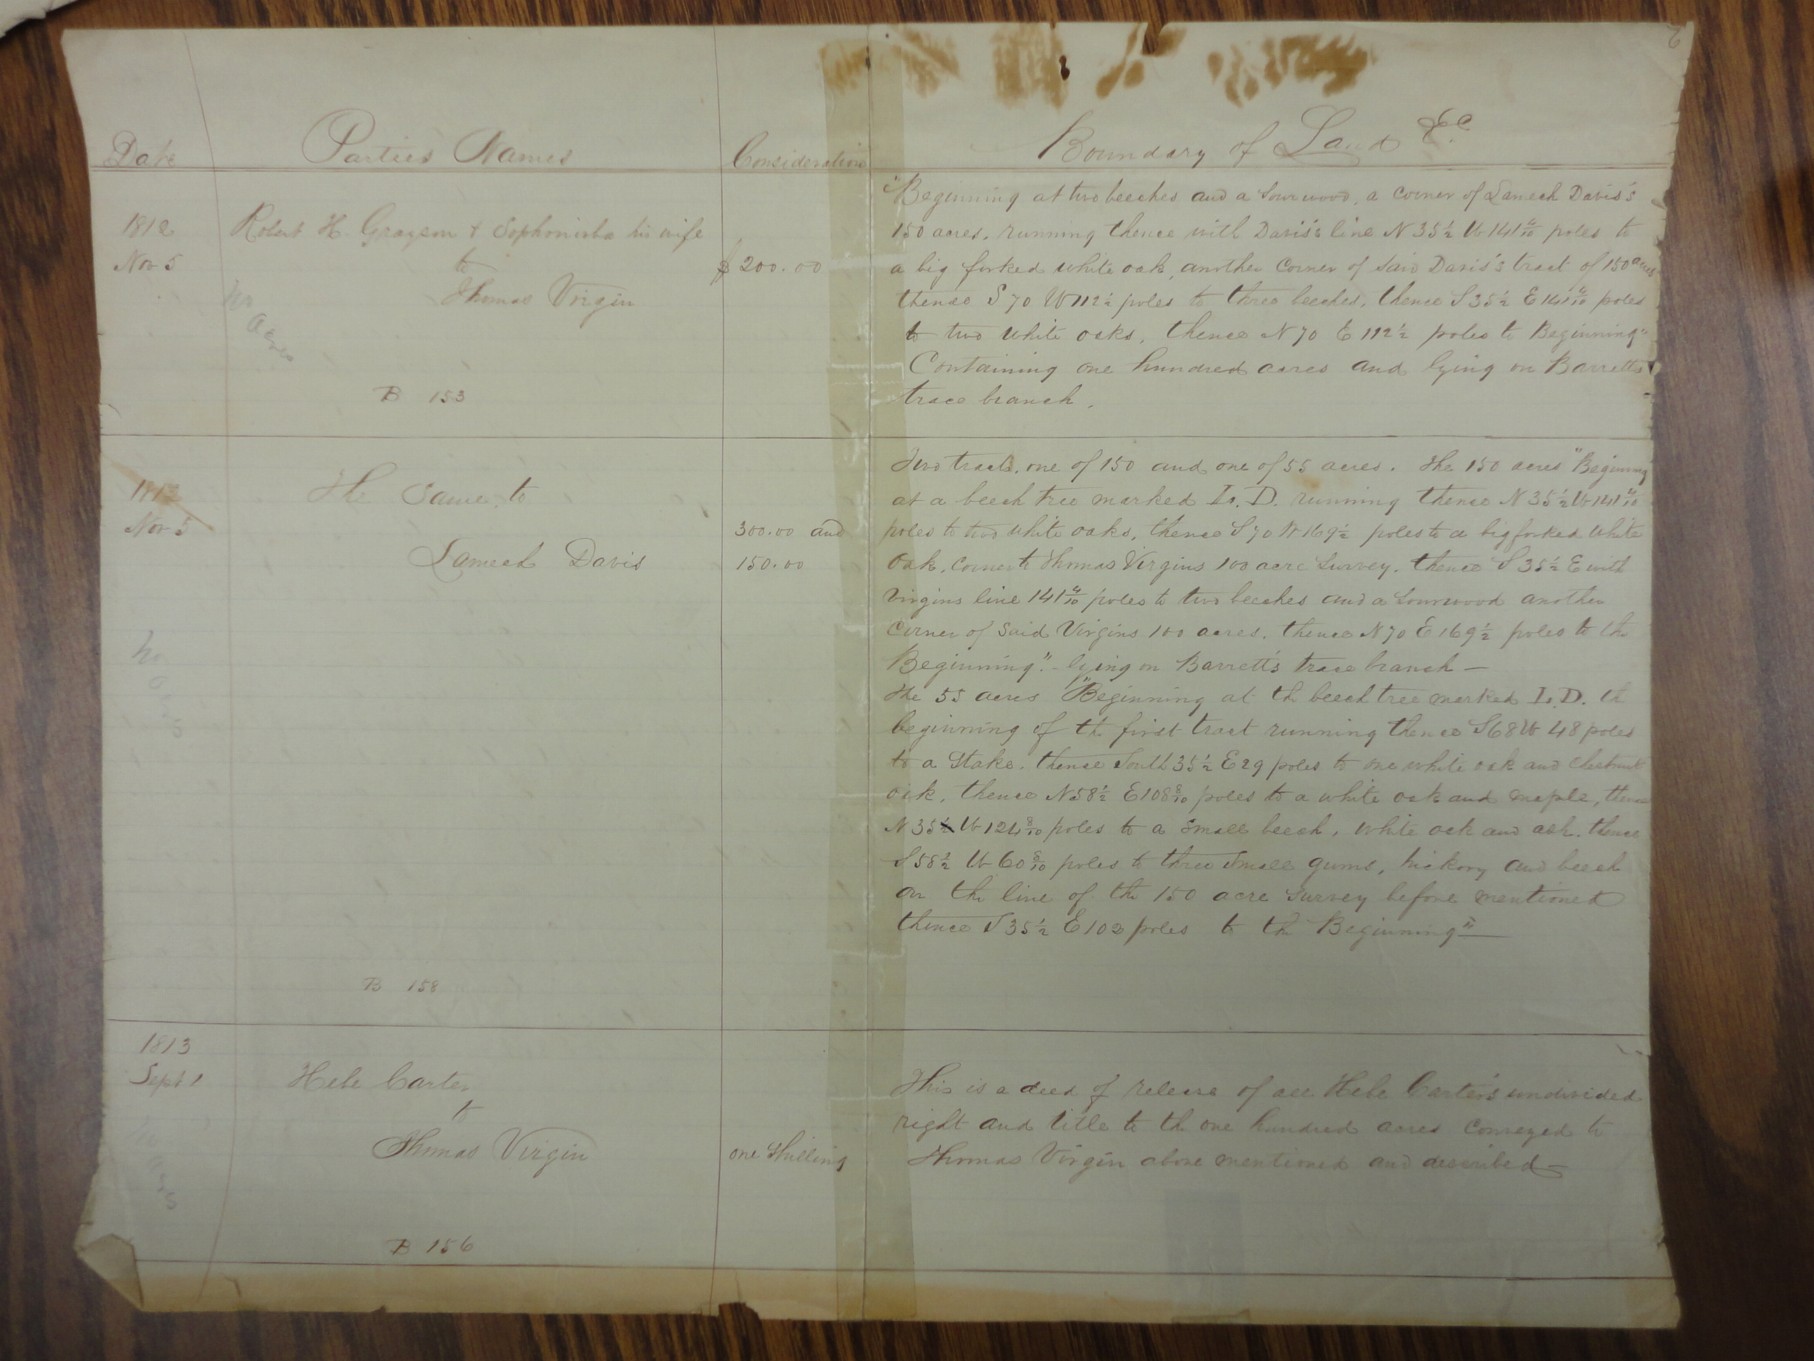 2
Date Parties Names Consideration Boundary of Land &c.
1812
Nov 5
Robert H. Grayson & Sophonisba his wife
to
Thomas Virgin
no
acres
B 153
$200.00
"Beginning at two beeches and a Sourwood, a corner of Lamech Davis's
150 acres, running thence with Davis's line N 35 1/2 W 141 4/10 poles to
a big forked white oak, another corner of said Davis's tract of 150 acres
thence S 70 W 112 1/2 poles to three beeches, thence S 35 1/2 E 141 4/10 poles
to two white oaks, thence N 70 E 112 1/2 poles to Beginning"
Containing one hundred acres and lying on Barretts
trace branch.
1812
Nov 5
The Same to
Lamech Davis
no
B 158
300.00 and
150.00
Two tracts, one of 150 and one of 55 acres. The 150 acres "Beginning
at a beech tree marked L. D. running thence N 35 1/2 W 141 4/10
poles to two white oaks, thence S 70 W 169 1/2 poles to a big forked white
Oak, corner to Thomas Virgins 100 acre Survey, thence S 35 1/2 E with
Virgins line 141 4/10 poles to two beeches and a Sourwood another
corner of said Virgins 100 acres, thence N 70 E 169 1/2 poles to th
Beginning".- lying on Barrett's trace branch —
The 55 acres "Beginning at th beech tree marked L. D. th
beginning of th first tract running thence S 68 W 48 poles
to a Stake. thence South 35 1/2 E 29 poles to one white oak and chestnut
oak, thence N 58 1/2 E 108 8/10 poles to a white oak and maple, thence
N 35 W 124 8/10 poles to a small beech, white oak and ash. thence
S 58 1/2 W 60 8/10 poles to three small gums, hickory and beech
on the line of the 150 acre Survey before mentioned
thence S 35 1/2 E 103 poles to th Beginning" —
1813
Sept 1
Hebe Carter
to
Thomas Virgin
B 156
one Shilling
This is a deed of release of all Hebe Carter's undivided
right and title to th one hundred acres conveyed to
Thomas Virgin above mentioned and described —